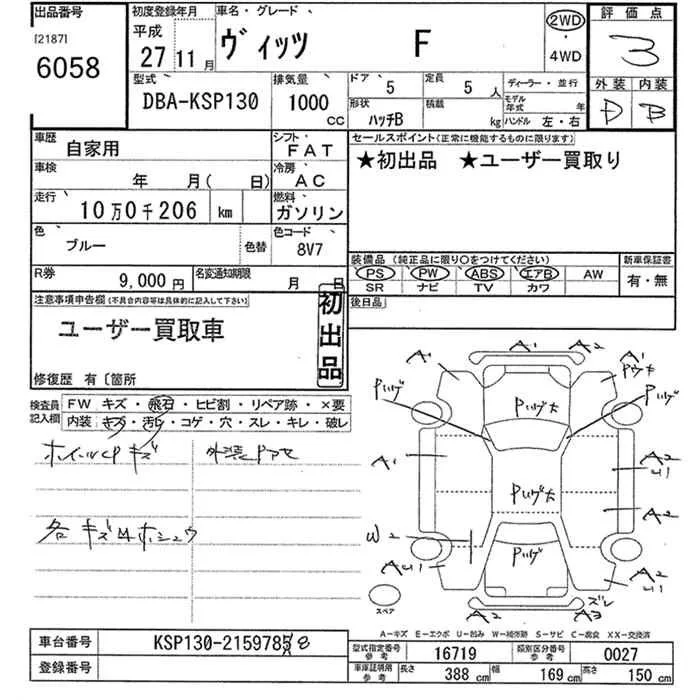 出品番号 初度登録年月 車名・グレード 評価点
[2187] 平成 27年 11月 ヴィッツ F 2WD・4WD 3
6058
型式 排気量 ドア 5 定員 5人 ディーラー・並行 外装 内装
DBA-KSP130 1000cc 形状 ハッチB 積載 kg モデル年式 年 ハンドル 左・右 D B
車歴 自家用 シフト FAT セールスポイント(正常に機能するものに限ります)
車検 年 月( 日) 冷房 AC ★初出品 ★ユーザー買取り
走行 10万0千206 km 燃料 ガソリン
色 ブルー 色替 色コード 8V7
装備品 (純正品に限り○をつけてください) 新車保証書
PS PW ABS エアB AW 有・無
SR ナビ TV カワ
R券 9,000円 名変通知期限 月 日 後日品
注意事項申告欄(不具合内容等は具体的に記入して下さい)
ユーザー買取車 初出品
修復歴 有〔箇所
検査員記入欄 FW キズ・飛石・ヒビ割・リペア跡・×要
内装 キズ・汚れ・コゲ・穴・スレ・キレ・破レ
ホイールCPキズ
各キズ凹ホシュウ
A1 A1 A2 A2
Pハゲ Pハゲ大 Pハゲ
A1 Pハゲ大 A2
A2
W2 Pハゲ A2
スペア A2 A3 ズレ
A-キズ E-エクボ U-凹み W-補修跡 S-サビ C-腐食 XX-交換済
車台番号 KSP130-2159785 8 型式指定番号 参考 16719 類別区分番号 参考 0027
登録番号 車庫証明用 参考 長さ 388cm 幅 169cm 高さ 150cm